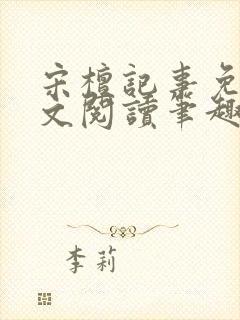 宋檀記事免
文閱讀筆趣
李莉